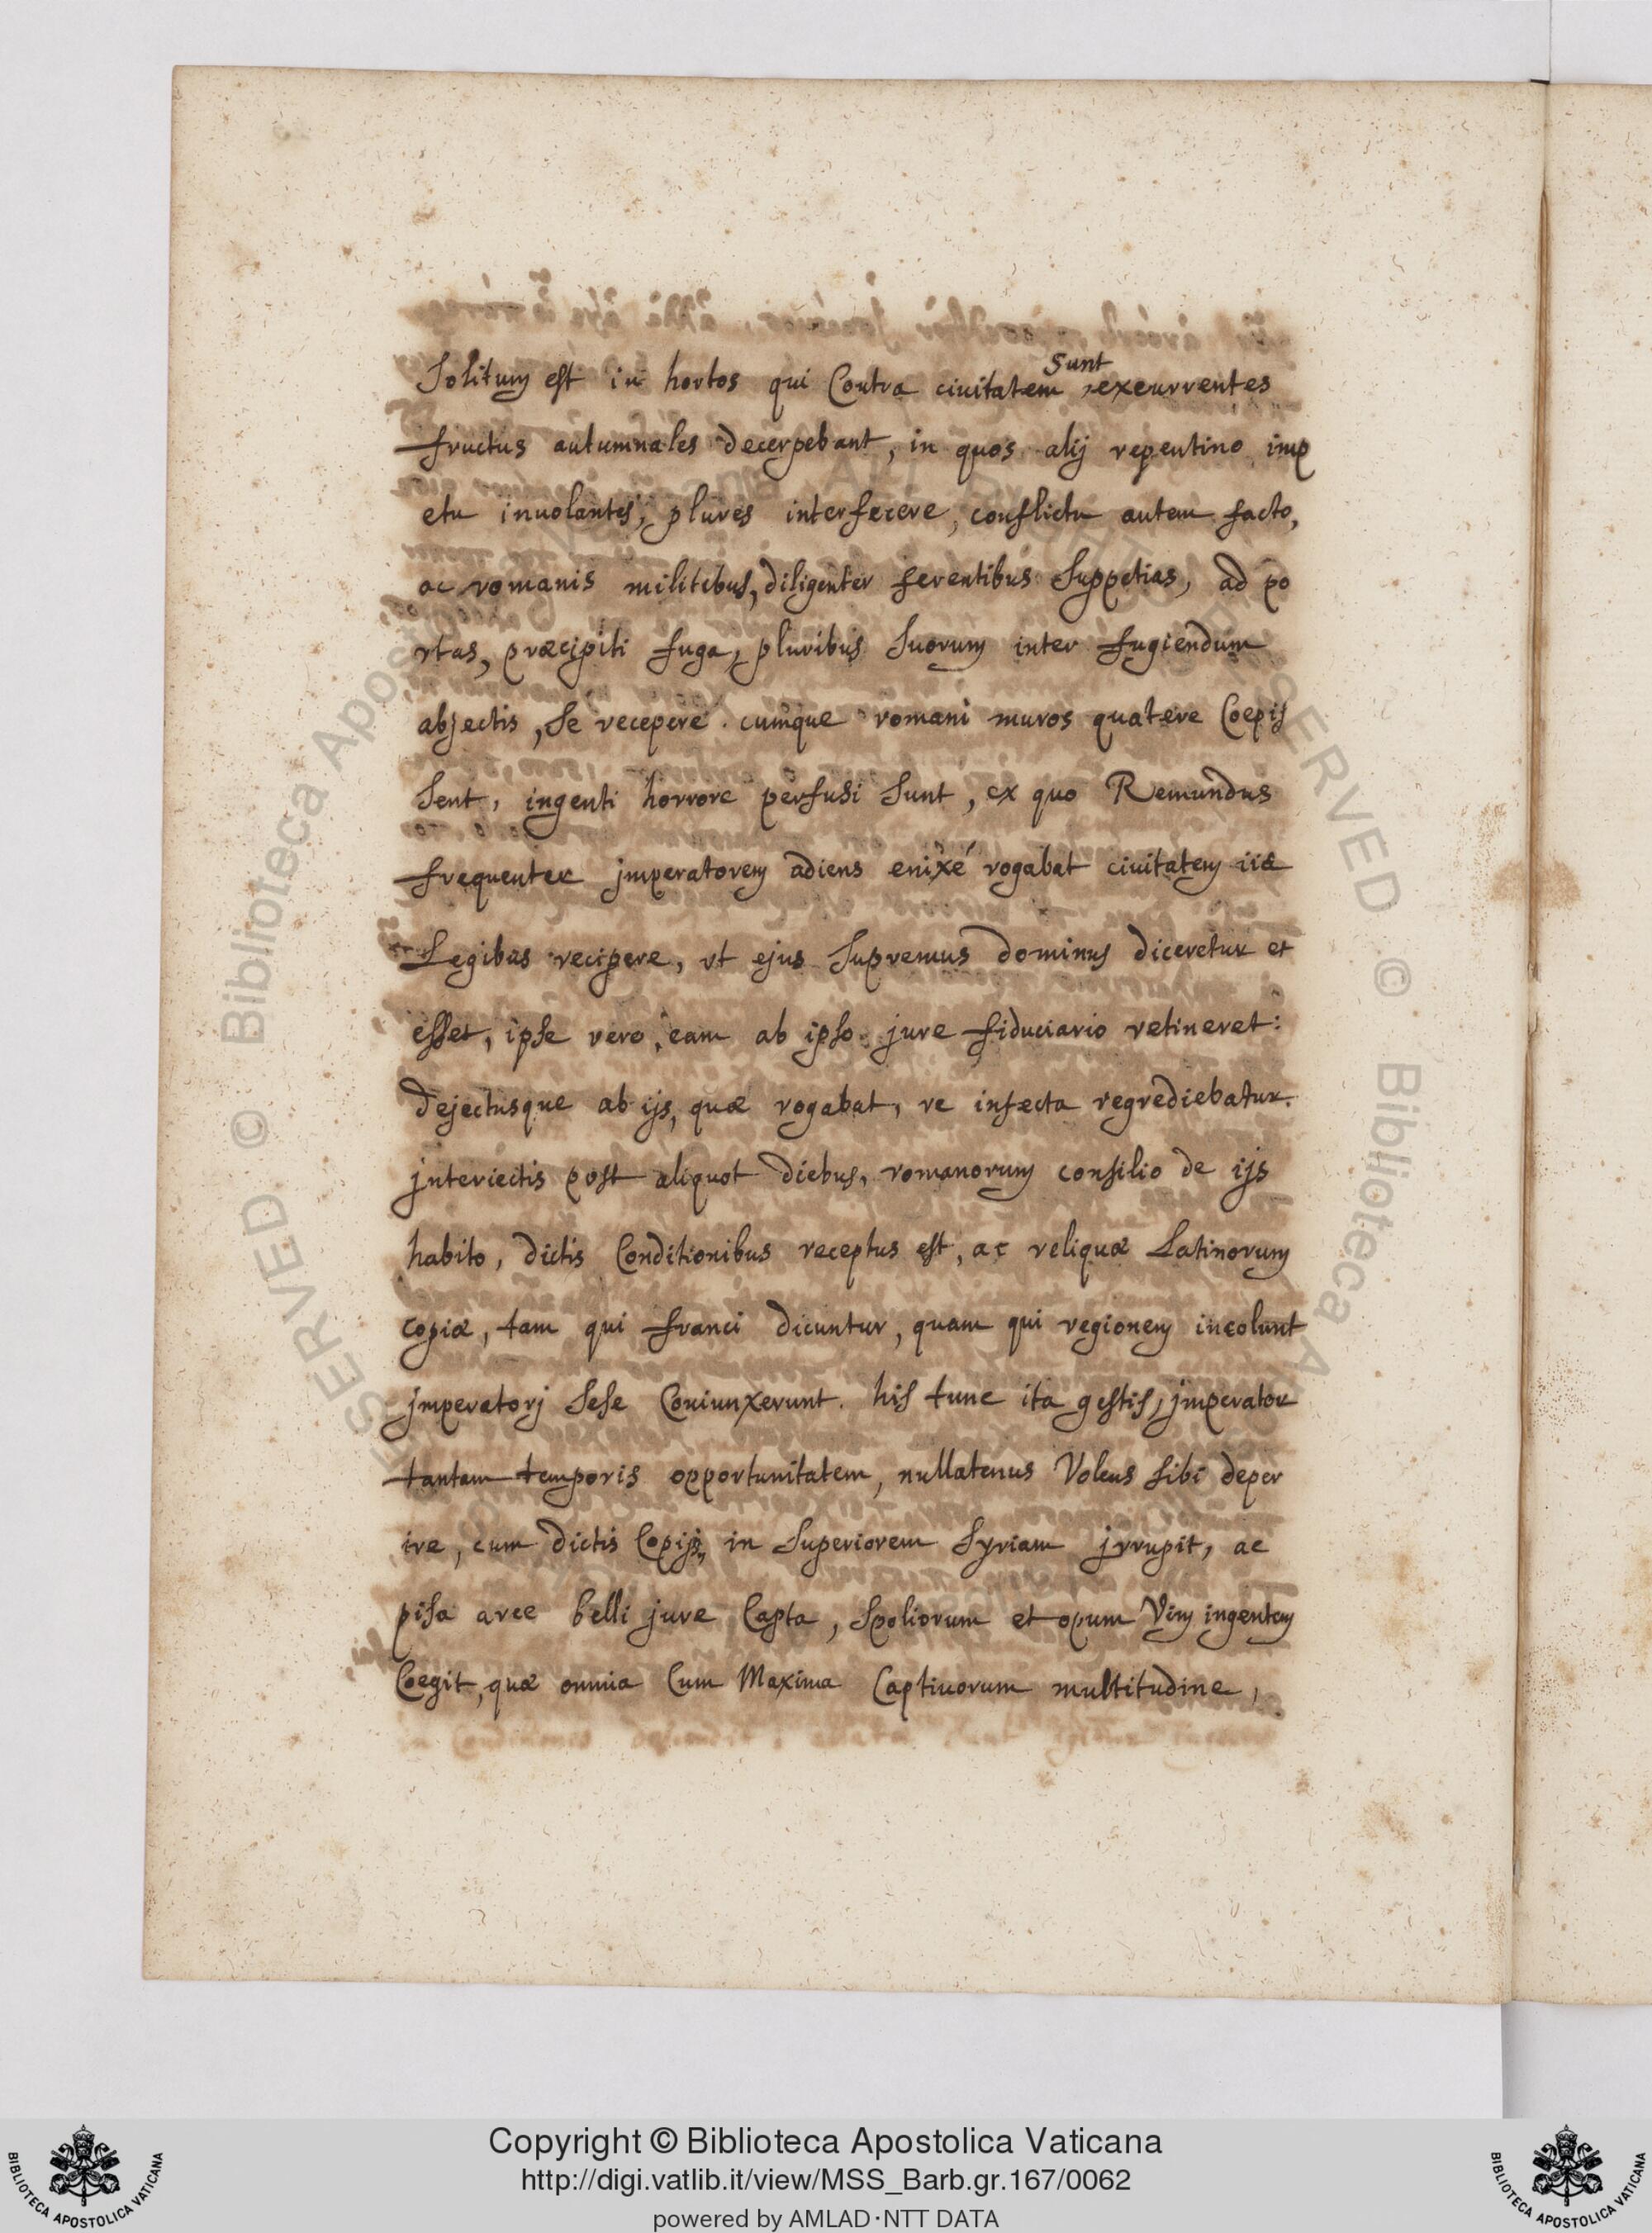 Solitum est in hortos qui Contra ciuitatem Sunt, excurrentes
fructus autumnales decerpebant, in quos alij repentino imp
etu inuolantes, plures interfecere, conflictu autem facto,
ac romanis militibus, diligenter ferentibus Suppetias, ad po
rtas, præcipiti fuga, pluribus Suorum inter fugiendum
abjectis, Se recepere. cumque romani muros quatere Coepis
Sent, ingenti horrore perfusi Sunt, ex quo Remundus
frequenter jmperatorem adiens enixé rogabat ciuitatem iis
Legibus recipere, vt ejus Supremus dominus diceretur et
esset, ipse vero, eam ab ipso jure fiduciario retineret:
dejectusque ab ijs, quæ rogabat, re infecta regrediebatur.
jnteriectis post aliquot diebus, romanorum consilio de ijs
habito, dictis Conditionibus receptus est, ac reliquæ Latinorum
copiæ, tam qui franci dicuntur, quam qui regionem incolunt
jmperatorj Sese Coniunxerunt. his tunc ita gestis, jmperator
tantam temporis opportunitatem, nullatenus Volens sibi deper
ire, cum dictis Copijs, in Superiorem Syriam jrrupit, ac
pisa arce belli jure Capta, Spoliorum et opum Vim ingentem
Coegit, quæ omnia Cum Maxima Captiuorum multitudine,
Copyright © Biblioteca Apostolica Vaticana
http://digi.vatlib.it/view/MSS_Barb.gr.167/0062
powered by AMLAD·NTT DATA
BIBLIOTECA APOSTOLICA VATICANA
BIBLIOTECA APOSTOLICA VATICANA